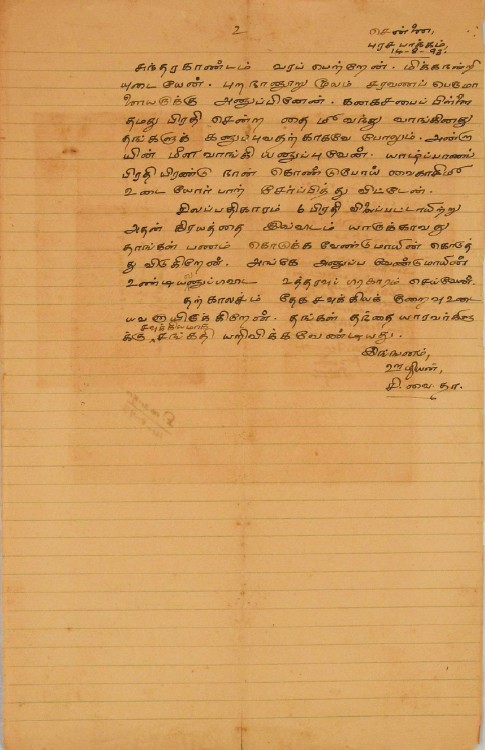 2
சென்னை,
புரசபாக்கம்,
14-8-92.
சுந்தரகாண்டம் வரப் பெற்றேன். மிக்கநன்றி
யுடையேன். புறநானூறு மூலம் சரவணப் பெருமா
ளையருக்கு அனுப்பினேன். கனகசபைப் பிள்ளை
தமது பிரதி சென்ற தை மீ வந்து வாங்கினது
தங்களுக் கனுப்புவதற்காகவே போலும். அன்னா
யின் மீள வாங்கி யனுப்புவேன். யாழ்ப்பாணப்
பிரதியிரண்டு நான் கொண்டுபோய் வைகாசி மீ
உடையோர்பார் சேர்ப்பித்து விட்டேன்.
சிலப்பதிகாரம் 6 பிரதி விற்கப்பட்டாயிற்று
அதன் கிரயத்தை இவ்விடம் யாருக்காவது
தாங்கள் பணம் கொடுக்க வேண்டுமாயின் கொடுத்
து விடுகிறேன். அங்கே அனுப்ப வேண்டுமாயின்
உண்டியனுப்ப உத்தரவுப் பிரகாரம் செய்வேன்.
தற்காலசம் தேக சவுக்கியக் குறைவு உடை
யவனாயிருக்கிறேன். தங்கள் தந்தையாரவர்களு
க்கு சவுக்கியமாக சங்கதி யறிவிக்கவேண்டியது.
இங்ஙனம்,
ஊழியன்,
சி. வை. தா.